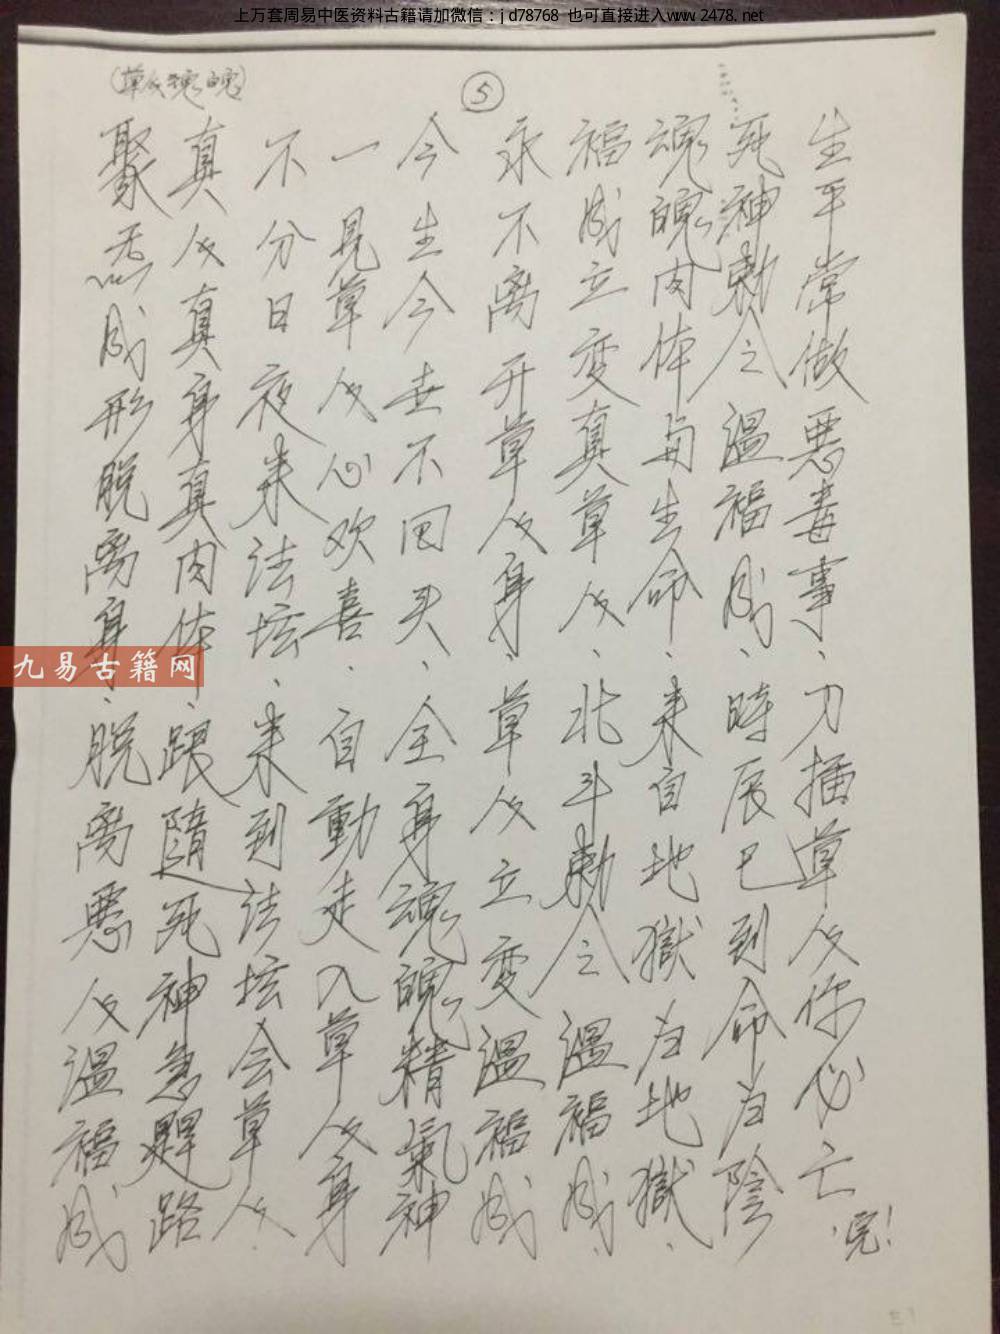 上万套周易中医资料古籍请加微信：jd78768 也可直接进入www.2478.net
⑤
(草人魂魄)
聚炁成形脱离身、脱离悪人温福成
真人真身真肉体、跟隨死神急趕路
不分日夜来法坛、来到法坛会草人.
一見草人心欢喜.自動走入草人身
今生今世不回头、全身魂魄精氣神
永不离开草人身、草人立变温福成
福成立变真草人、北斗勅令温福成.
魂魄肉体与生命.来自地獄归地獄.
死神勅令温福成、時辰已到命归陰
生平常做悪毒事、刀插草人你必亡.完!
九易古籍网